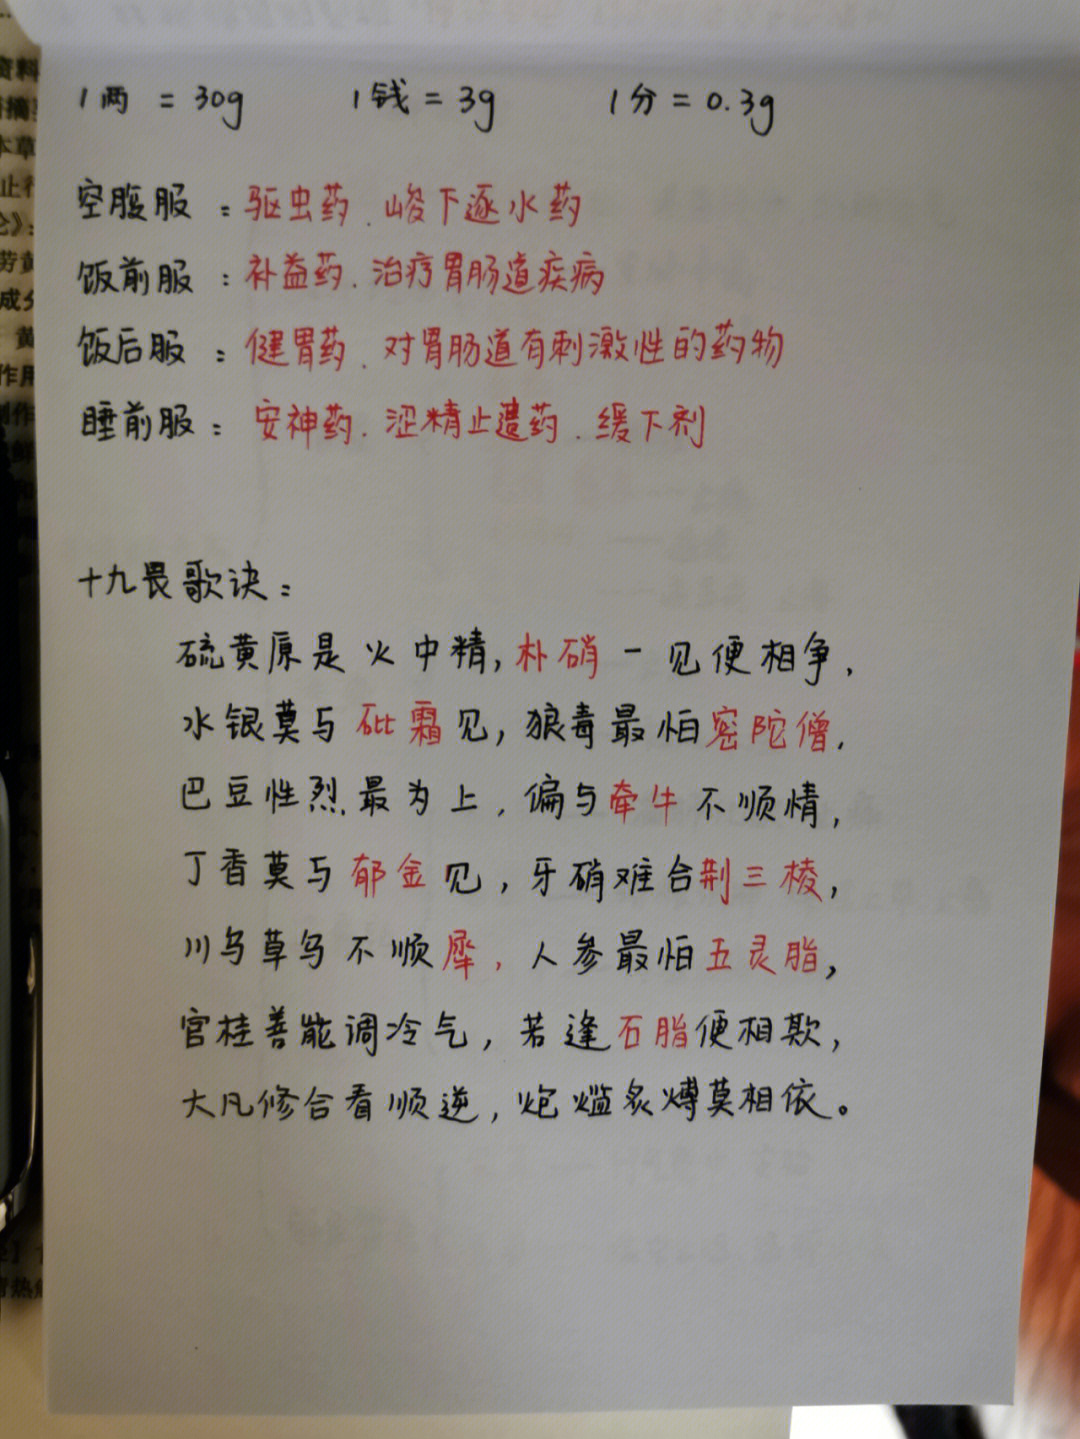 1两 = 30g 1钱 = 3g 1分 = 0.3g
空腹服：驱虫药、峻下逐水药
饭前服：补益药、治疗胃肠道疾病
饭后服：健胃药、对胃肠道有刺激性的药物
睡前服：安神药、涩精止遗药、缓下剂
十九畏歌诀：
硫黄原是火中精，朴硝一见便相争，
水银莫与砒霜见，狼毒最怕密陀僧，
巴豆性烈最为上，偏与牵牛不顺情，
丁香莫与郁金见，牙硝难合荆三棱，
川乌草乌不顺犀，人参最怕五灵脂，
官桂善能调冷气，若逢石脂便相欺，
大凡修合看顺逆，炮爁炙煿莫相依。
资料
摘
本草
止
论》：
劳黄
成分
黄
作用
制作
鲜
清热